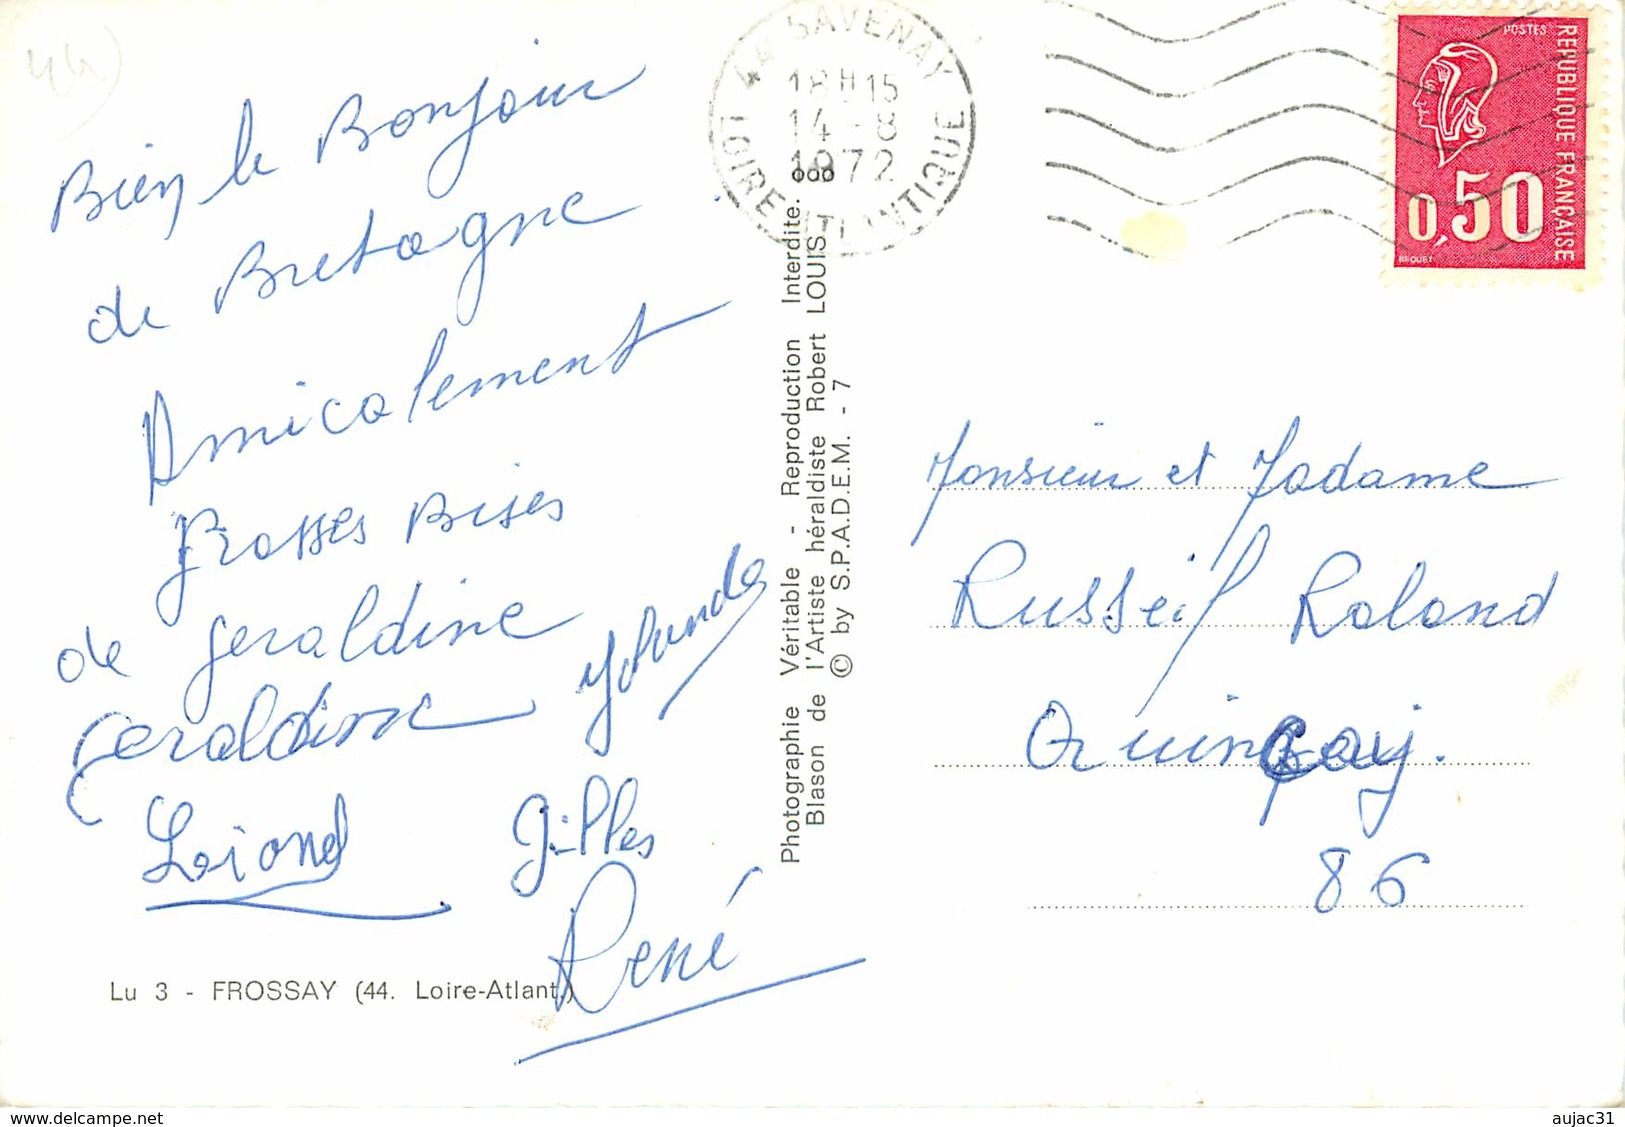 44
Bien le Bonjour
de Bretagne
Amicalement
Grosses Bises
de Geraldine
Geraldine Yolande
Gilles
René
Lu 3 - FROSSAY (44. Loire-Atlant.)
Photographie Véritable - Reproduction Interdite.
Blason de l'Artiste héraldiste Robert LOUIS
© by S.P.A.D.E.M. - 7
44 SAVENAY
18H15
14-8
1972
LOIRE ATLANTIQUE
POSTES
REPUBLIQUE FRANÇAISE
0,50
BEQUET
Monsieur et Madame
Russeil Roland
Quinçay.
86
www.delcampe.net
aujac31